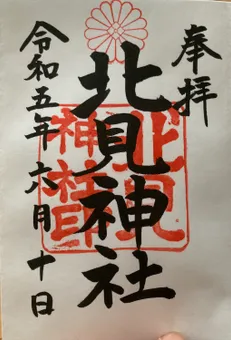 奉拝
北見神社
令和五年六月十日
北見
神社印